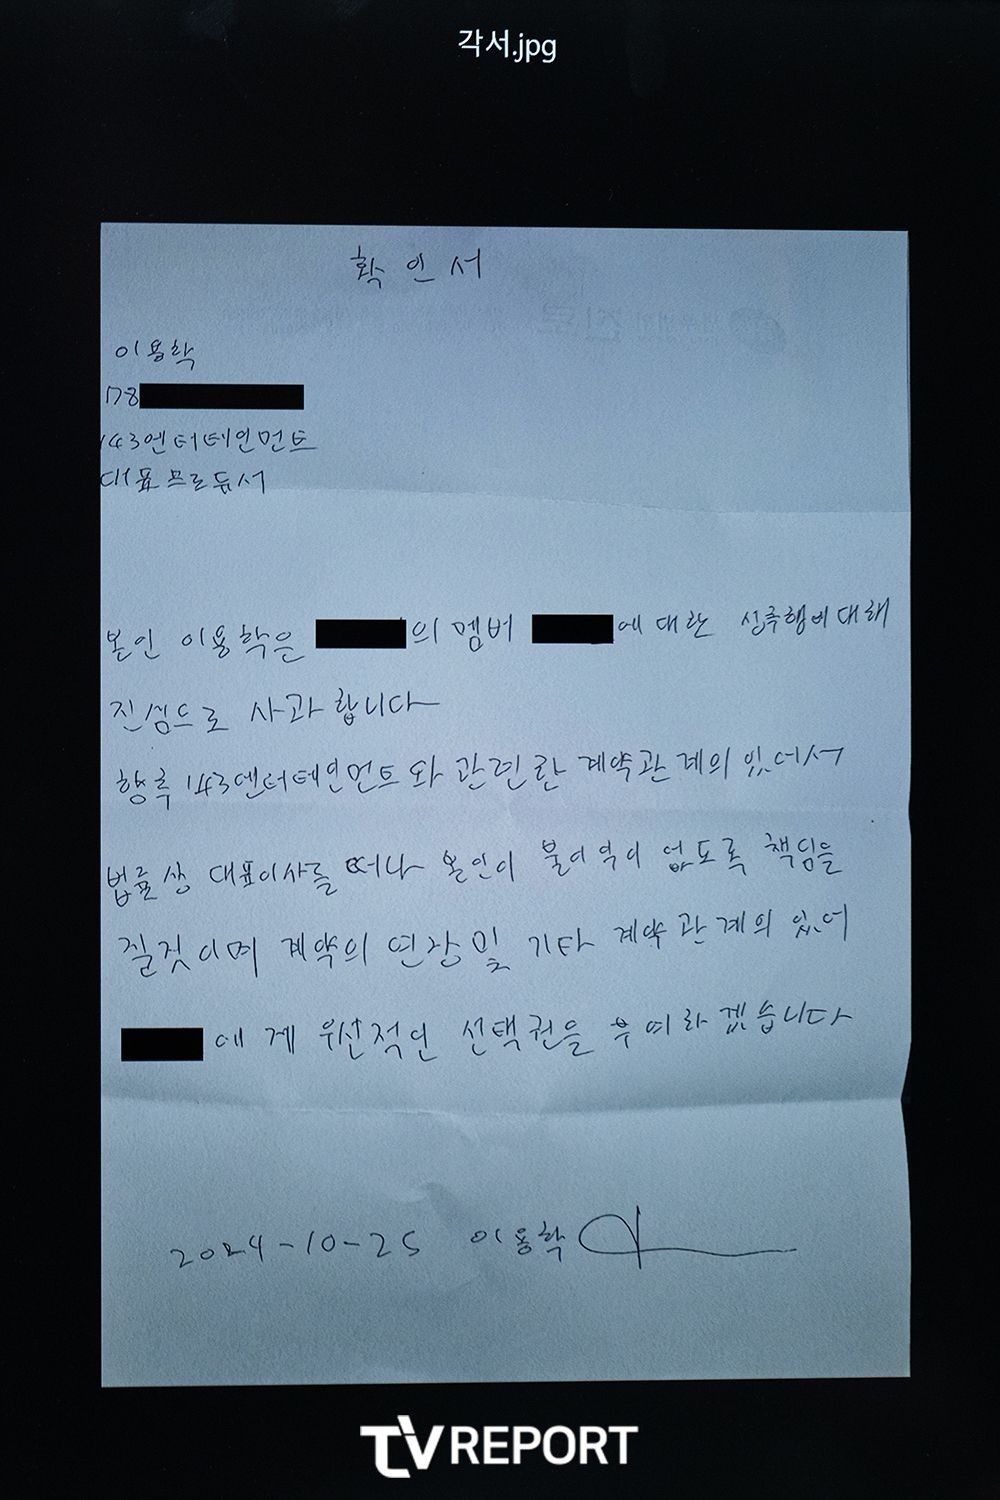 각서.jpg
확인서
이용학
178
143엔터테인먼트
대표프로듀서
본인 이용학은 의 멤버 에 대한 성추행에대해
진심으로 사과합니다
향후 143엔터테인먼트와 관련한 계약관계의 있어서
법률상 대표이사를 떠나 본인이 불이익이 없도록 책임을
질것이며 계약의 연장 및 기타 계약관계의 있어
에게 우선적인 선택권을 부여하겠습니다
2024-10-25 이용학
TV REPORT